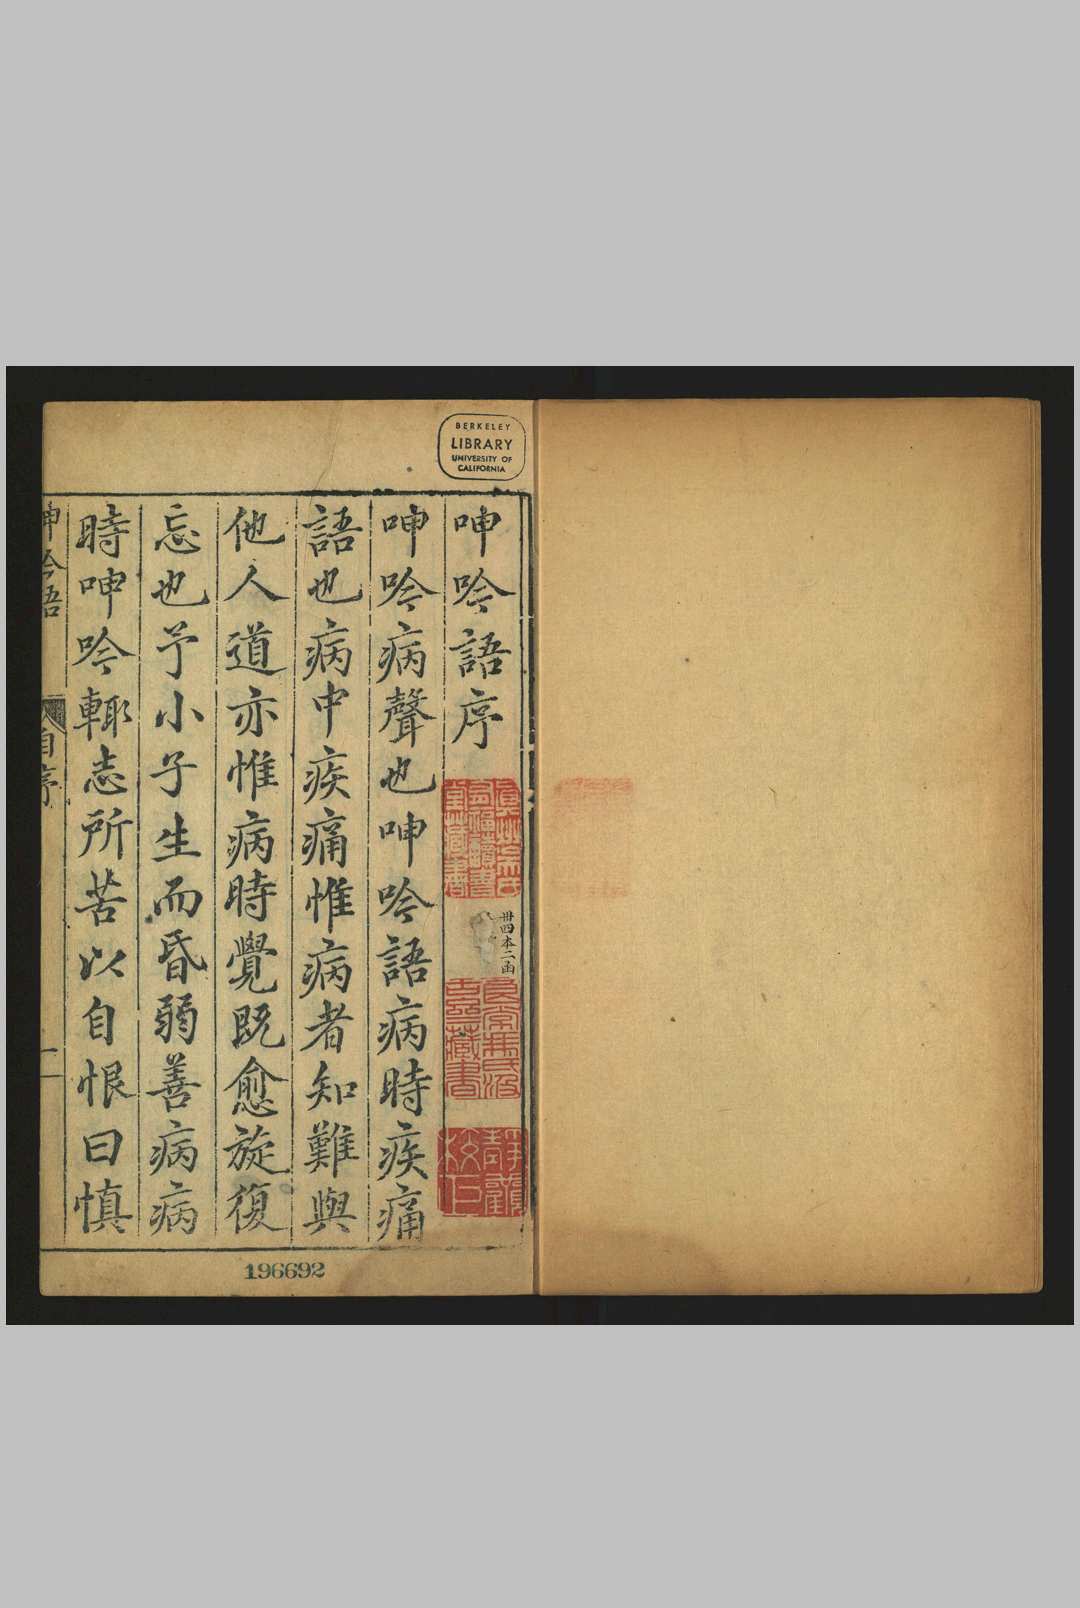 BERKELEY
LIBRARY
UNIVERSITY OF
CALIFORNIA
呻吟語序
呻吟病聲也呻吟語病時疾痛
語也病中疾痛惟病者知難與
他人道亦惟病時覺既愈旋復
忘也予小子生而昏弱善病病
時呻吟輙志所苦以自恨曰慎
呻吟語
自序
一
卅四本二函
藏書
196692